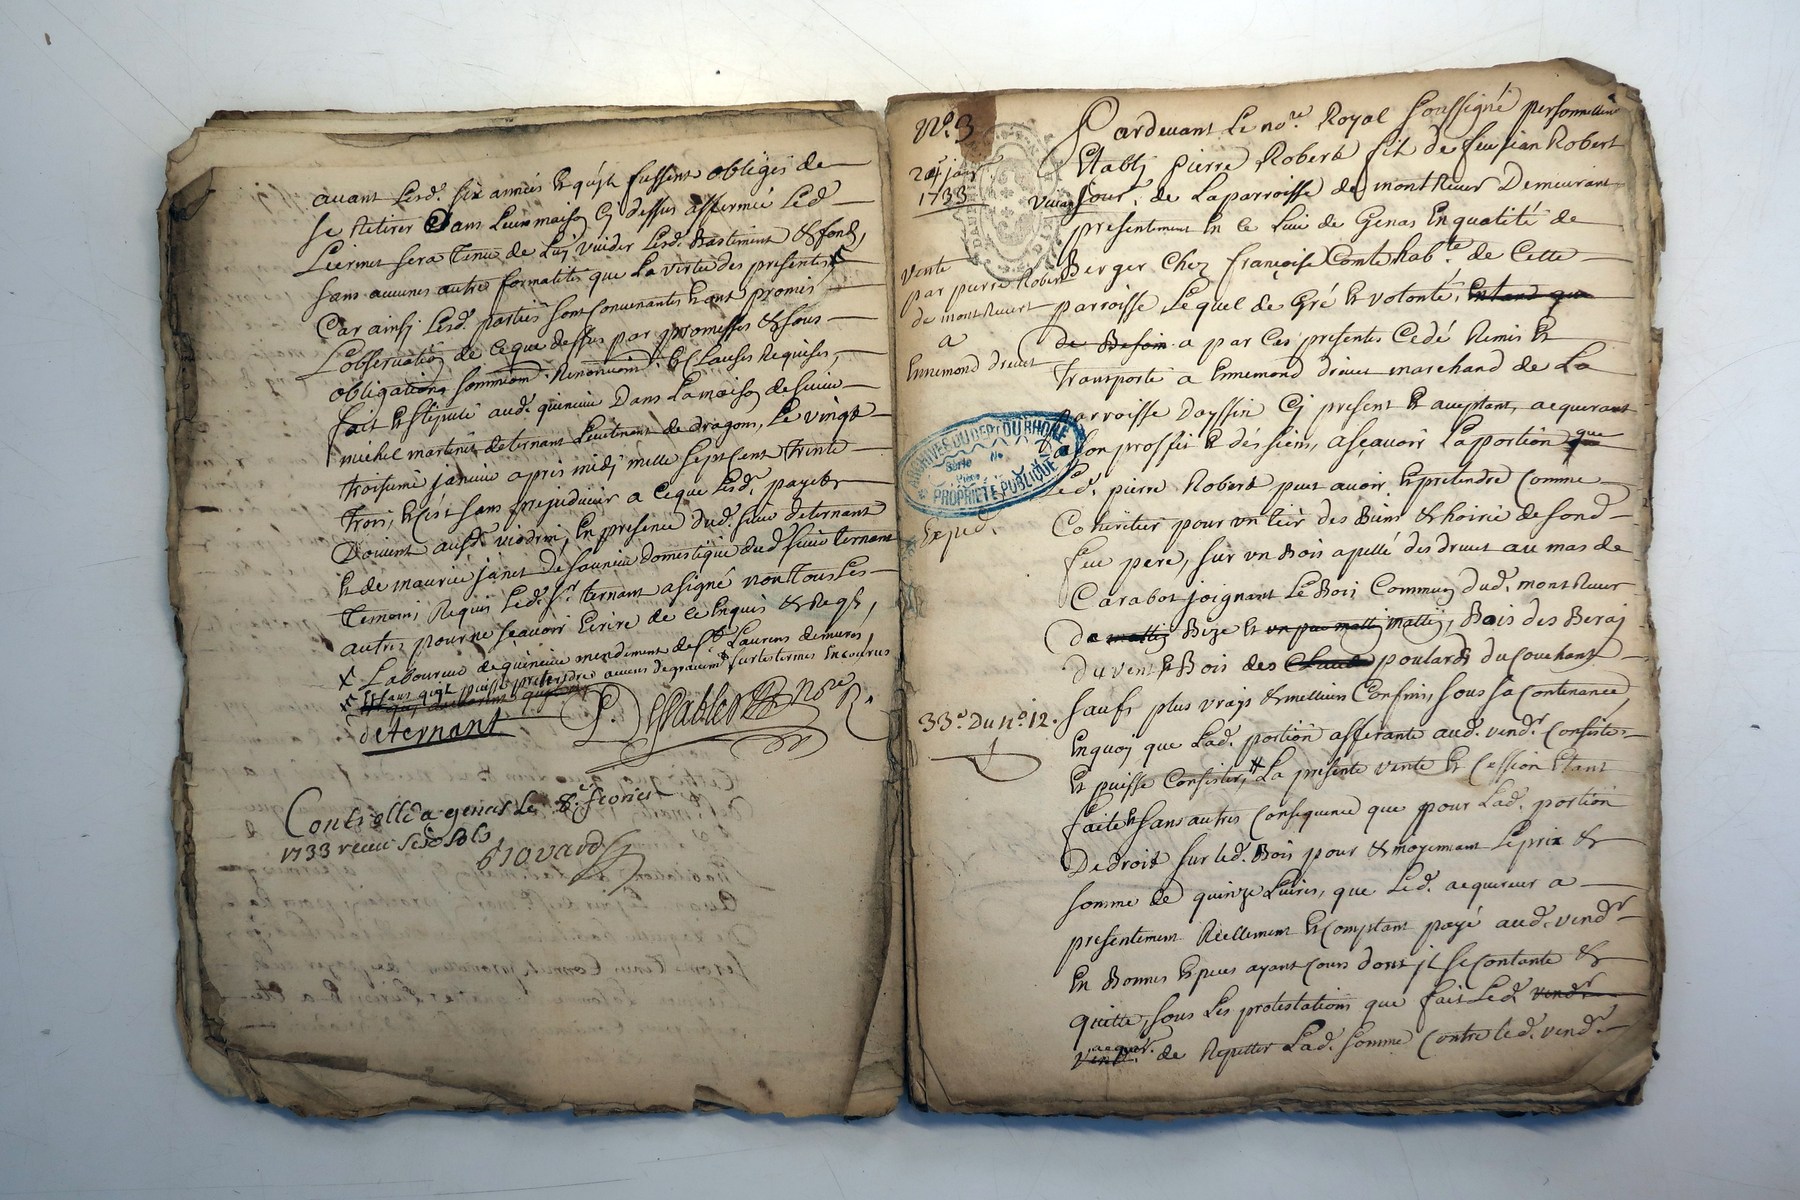 avant Lesd. six années & qu'ils fussent obligés de
se Retirer Dans Leur maison cy dessus affermée Led.
Liermet sera tenu de Luy vuider Lesd. Bastiment & fond,
sans aucunes autres formalités que La vertu des presentes
Car ainsy Lesd. parties sont convenantes & ont promis
L'observation de ce que dessus par promesses & sous
obligations soummion. Renonciond. & Clauses Requises,
fait & stipulé aud. quincieu Dans La maison de sieur
michel martin de ternant Lieutenant de dragons, Le vingt
troisieme janvier apres midy mille sept cent trente
trois, & c'est sans prejudicier a ce que Lesd. payets
Doivent aud. viodrin, En presence dud. sieur de ternant
& de maurice janet de domestique dud. sieur ternant
temoins Requis Led. Sr. ternant a signé non tous Les
autres pour ne sçavoir Ecrire de ce Enquis & Reqs,
x Laboureur de quincieu mendement de St. Laurens de mures,
x & sans qu'ils puissent pretendre aucuns degrevemt. sur les termes Encourus
deternant P. Dessables Nore R.
Controllé a genas Le 8e. fevrier
1733 receu
Giovard
No. 3
24e janv
1733
vente
par pierre Robert
de mont Revert
a
Ennemond drevet
Exped.
33e. Du No. 12.
Pardevant Le nore. Royal soussigné personnellemt
Etably pierre Robert fils de feu jean Robert
vivant de La parroisse de mont Revert Demeurant
presentement En ce Lieu de Genas En qualité de
Berger Chez françoise Comte habte. de Cette
parroisse Lequel de Gré & volonté, Entand que
de Besoin a par Ces presentes Cedé Remis &
transporté a Ennemond drevet marchand de La
parroisse Dayssin Cy present & acceptant, acquerant
a son proffit & des siens, asçavoir La portion que
Led. pierre Robert peut avoir & pretendre Comme
Coheritier pour un tier des Biens & hoirie de fond.
feu pere, sur un Bois apellé des drevet au mas de
Carabot joignant Le Bois Commun dud. mont Revert
de matin Bize & un peu matin matin, Bois des Beraj
du vent & Bois des poulards du Couchant
saufs plus vrays & meilleurs Confins, sous sa Contenance,
En quoy que Lad. portion afferante aud. vendr. Consiste
& puisse Consister, x La presente vente & Cession Etant
faite & sans autres Consequence que pour Lad. portion
De droit sur led. Bois pour & moyennant Le prix &
somme de quinze Livres, que Led. acquereur a
presentement Réellement & Comptant payé aud. vendr.
En Bonnes Especes ayant Cours dont jl se Contante &
quitte, sous Les protestations que fait Led. vendr.
vendr. acquer. de Repetter Lad. somme Contre led. vendr.
ARCHIVES DU DEPT DU RHONE
Série No
Pièce
PROPRIETE PUBLIQUE